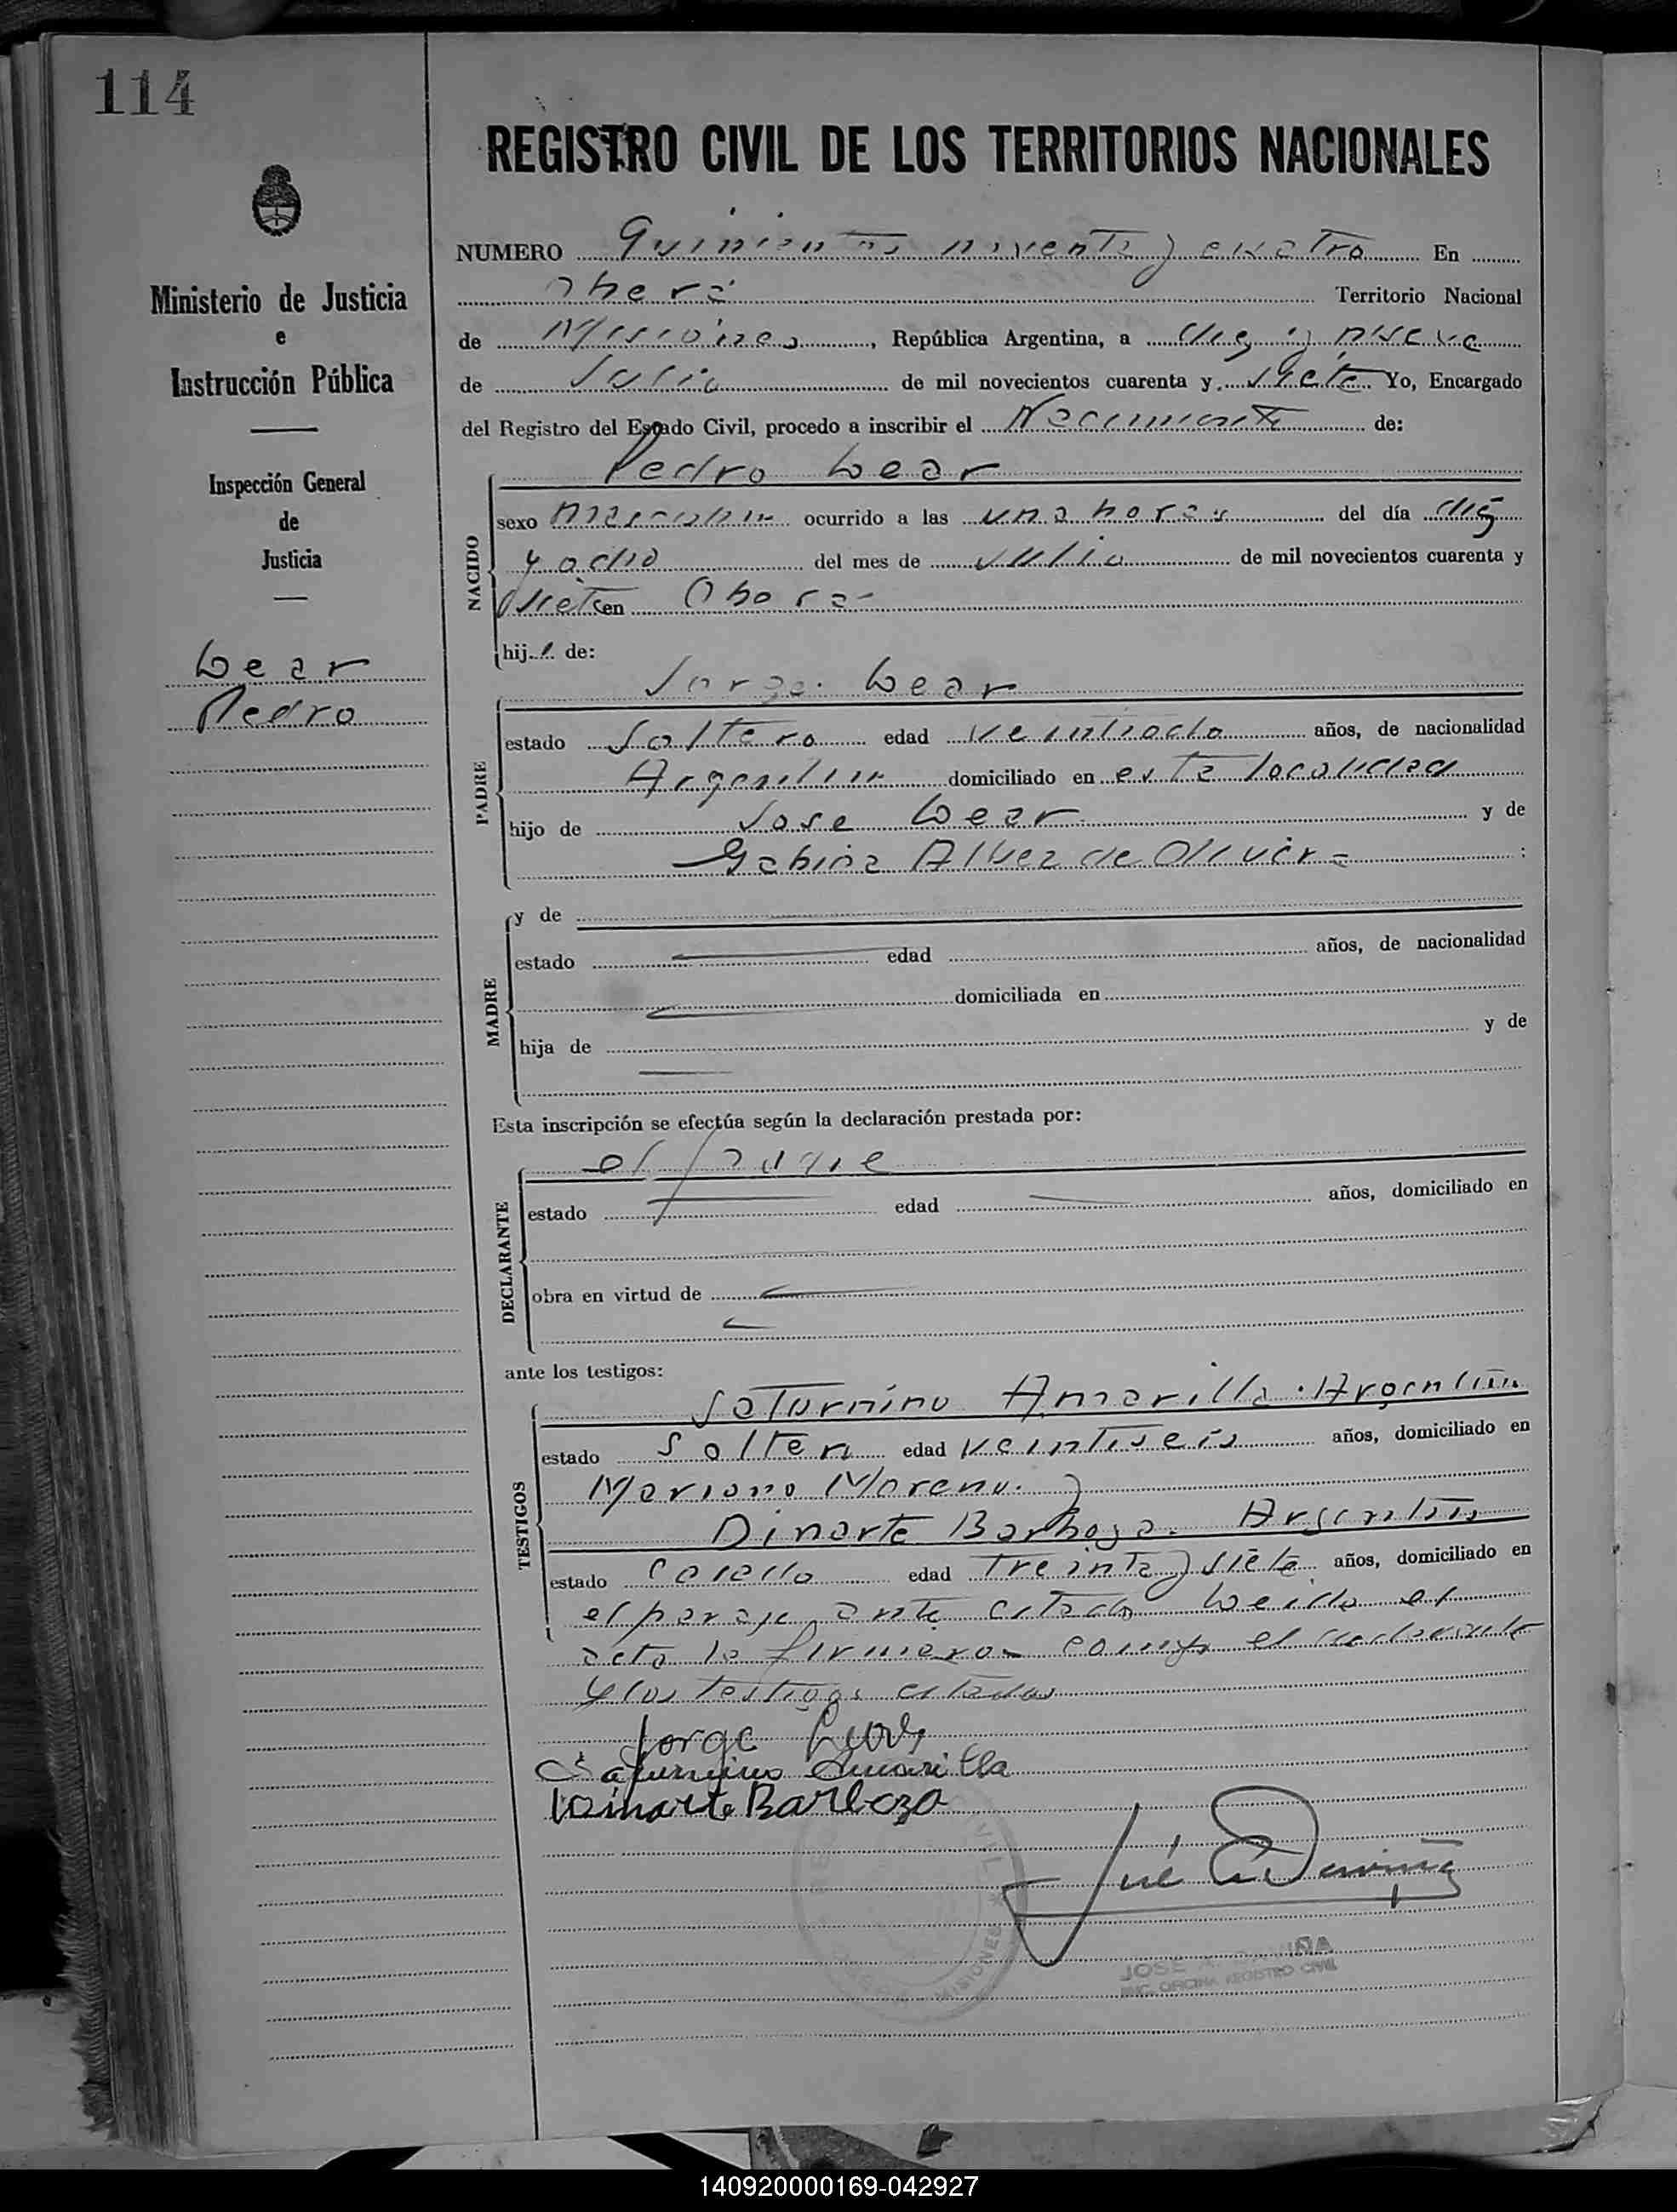 114
REGISTRO CIVIL DE LOS TERRITORIOS NACIONALES
Ministerio de Justicia
e
Instrucción Pública
Inspección General
de
Justicia
Lear
Pedro
NUMERO Quinientos noventa y cuatro En
Oberá Territorio Nacional
de Misiones, República Argentina, a diez y nueve
de Julio de mil novecientos cuarenta y siete Yo, Encargado
del Registro del Estado Civil, procedo a inscribir el Nacimiento de:
Pedro Lear
NACIDO
sexo masculino ocurrido a las una horas del día diez
y ocho del mes de Julio de mil novecientos cuarenta y
siete en Obera
hijo de:
Jorge Lear
PADRE
estado Soltero edad veintiocho años, de nacionalidad
Argentino domiciliado en esta localidad
hijo de Jose Lear y de
Gabina Alvez de Olivera :
MADRE
y de
estado edad años, de nacionalidad
domiciliada en
hija de y de
Esta inscripción se efectúa según la declaración prestada por:
el padre
DECLARANTE
estado edad años, domiciliado en
obra en virtud de
ante los testigos:
Saturnino Amarilla. Argentino
TESTIGOS
estado Soltero edad veintiseis años, domiciliado en
Mariano Moreno. y
Dinarte Barboza. Argentino
estado Casado edad treinta y siete años, domiciliado en
el paraje ante citado Leido el
acta la firmaron conmigo el declarante
y los testigos citados
Jorge
Saturnino Amarilla
Dinarte Barboza
MISIONES
JOSE
ENC. OFICINA REGISTRO CIVIL
140920000169-042927